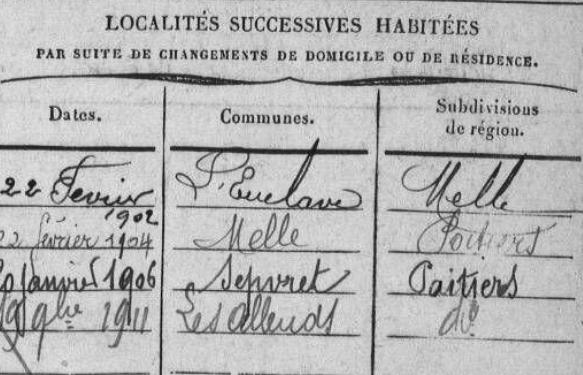 LOCALITÉS SUCCESSIVES HABITÉES
PAR SUITE DE CHANGEMENTS DE DOMICILE OU DE RÉSIDENCE.
Dates. Communes. Subdivisions
de région.
22 Fevrier L'Enclave Melle
1902
22 février 1904 Melle Poitiers
janvier 1906 Sepvret Poitiers
19 9bre 1911 Les Alleuds do